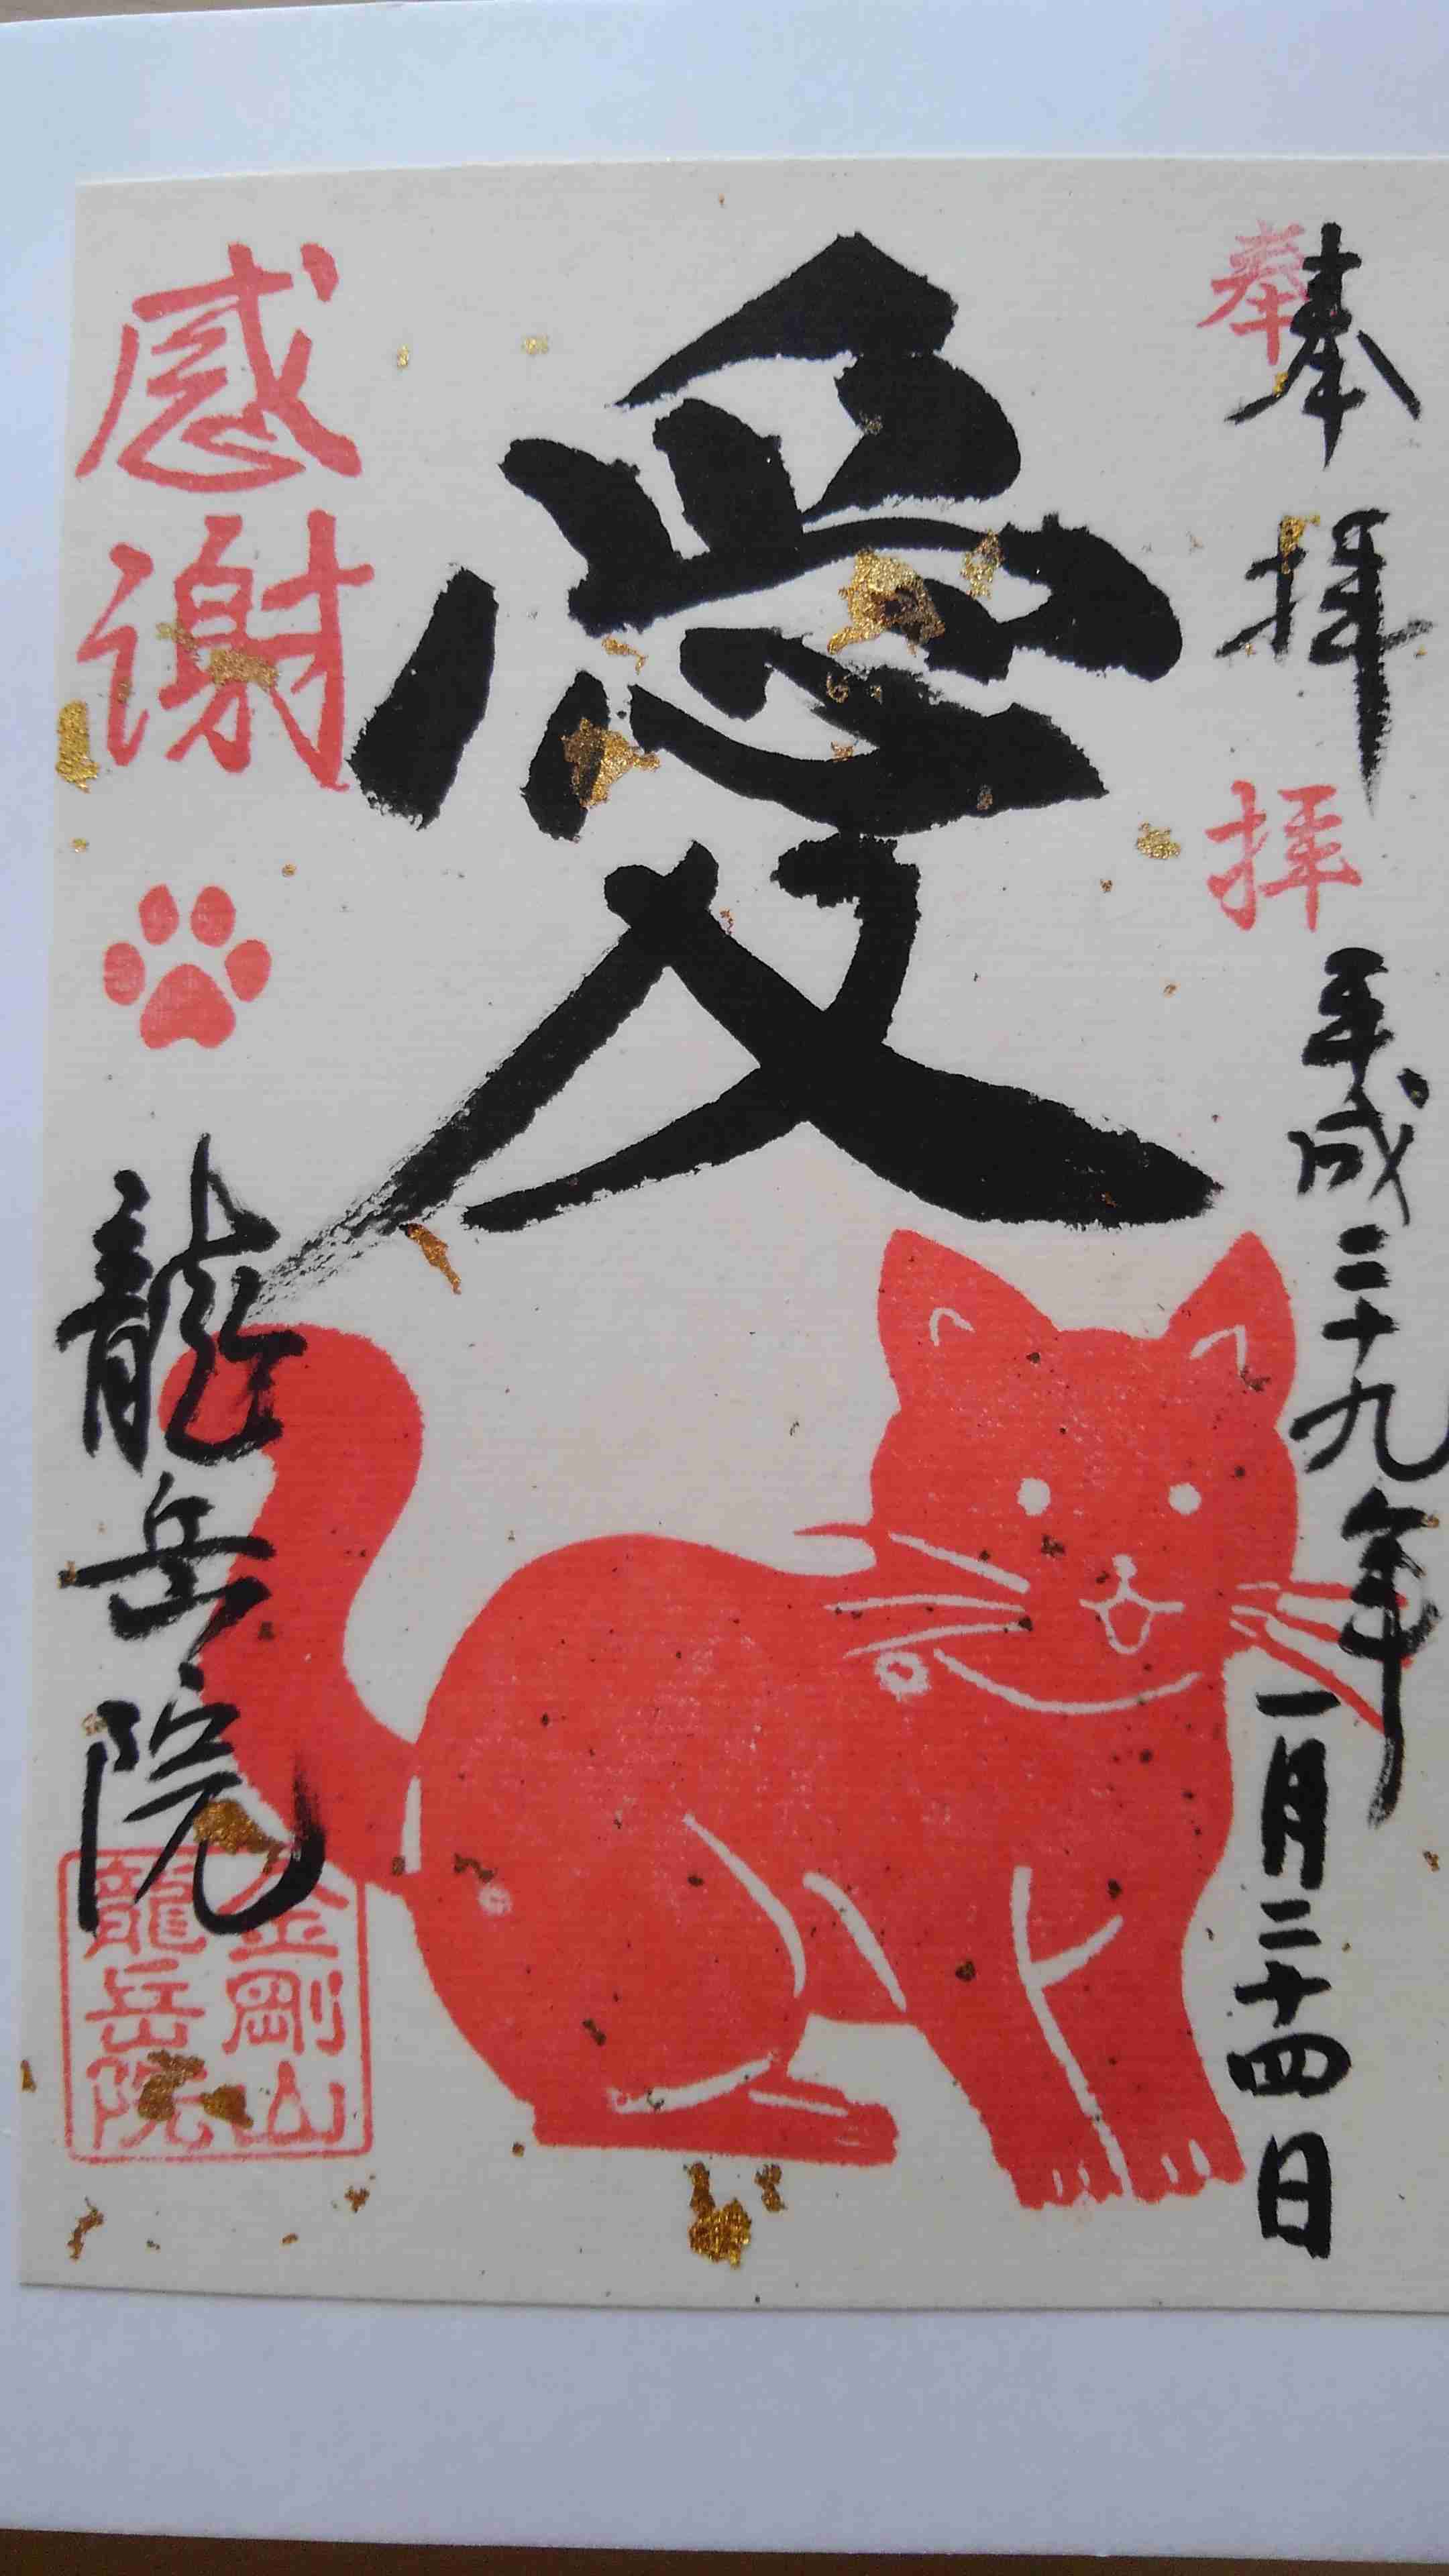 奉拝
奉拝
平成二十九年
一月二十四日
愛
感謝
龍岳院
金剛山
龍岳院